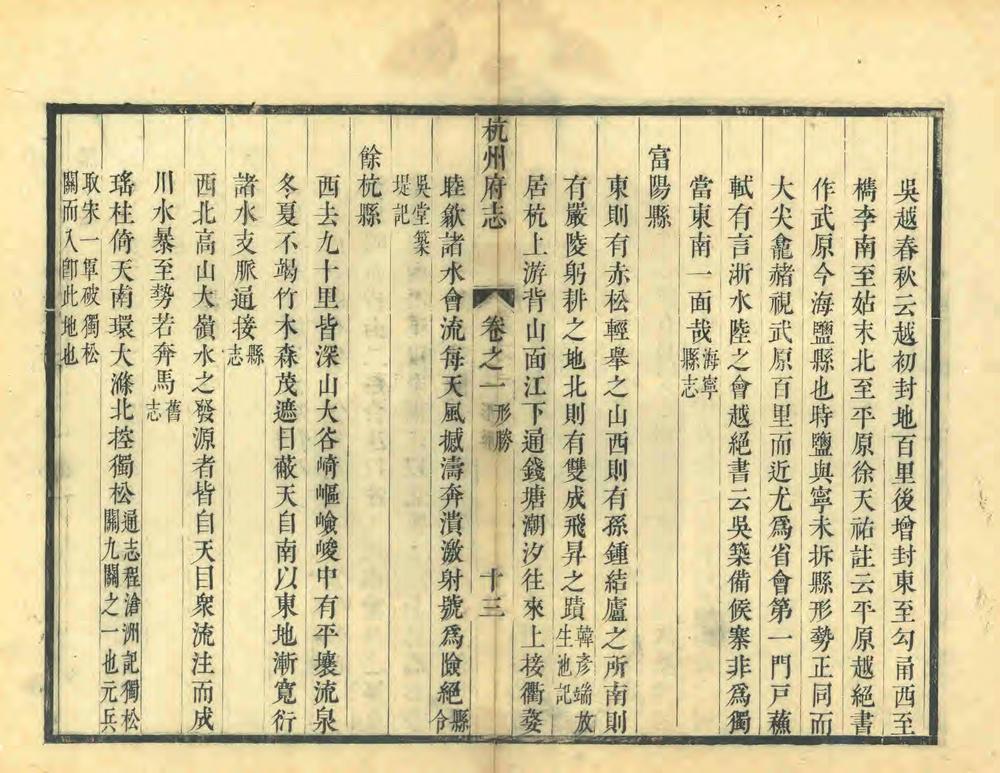 吳越春秋云越初封地百里後增封東至勾甬西至
檇李南至姑末北至平原徐天祐註云平原越絕書
作武原今海鹽縣也時鹽與寧未拆縣形勢正同而
大尖龕赭視武原百里而近尤爲省會第一門戸蘓
軾有言浙水陸之會越絕書云吳築備候寨非爲獨
當東南一面哉海寧縣志
富陽縣
東則有赤松輕舉之山西則有孫鍾結廬之所南則
有嚴陵躬耕之地北則有雙成飛昇之蹟韓彥端放生池記
居杭上游背山面江下通錢塘潮汐往來上接衢婺
杭州府志 卷之一 形勝 十三
睦歙諸水會流每天風撼濤奔潰激射號爲險絕縣令
吳堂築堤記
餘杭縣
西去九十里皆深山大谷崎嶇嶮峻中有平壤流泉
冬夏不竭竹木森茂遮日蔽天自南以東地漸寬衍
諸水支脈通接縣志
西北高山大嶺水之發源者皆自天目衆流注而成
川水暴至勢若奔馬舊志
瑤柱倚天南環大滌北控獨松通志程滄洲記獨松關九關之一也元兵
取宋一軍破獨松關而入卽此地也